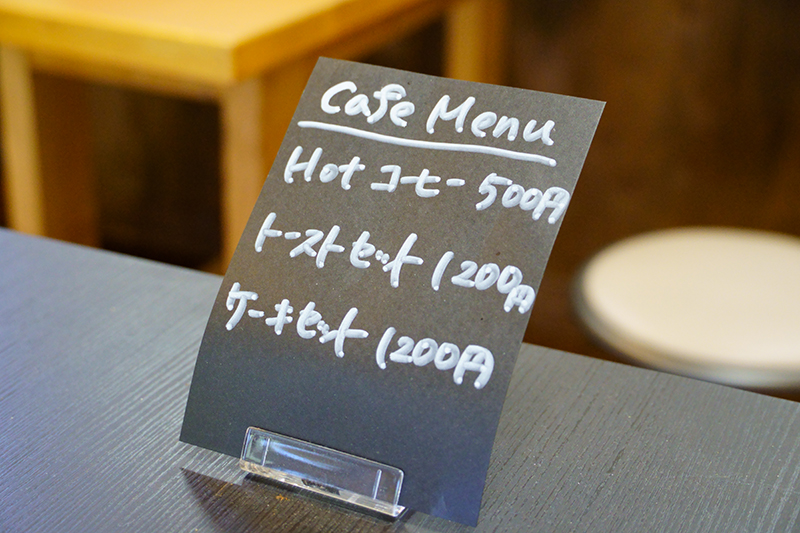 Cafe Menu
Hot コーヒー 500円
トーストセット 1200円
ケーキセット 1200円